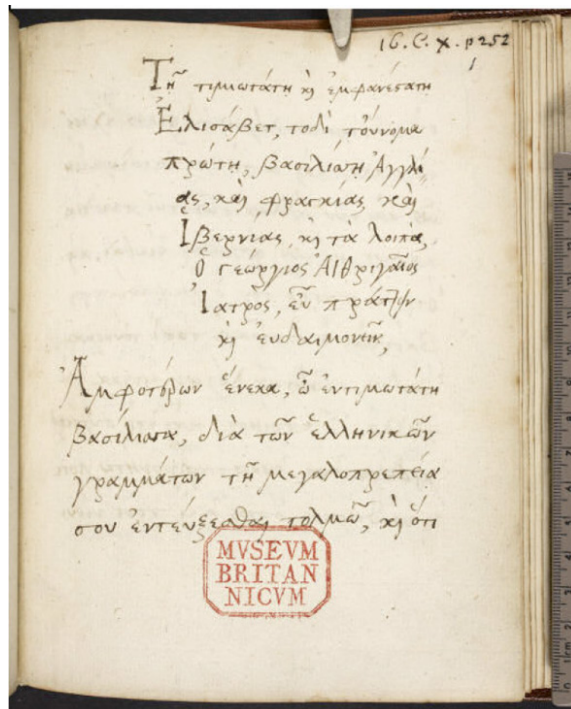 16. C. X. p 252
1
Τῇ τιμιωτάτῃ κὶ ἐμφανεςάτῃ
Ἐλισάβετ, τοδὶ τοὔνομα
πρώτῃ, βασιλίσσῃ Ἀγγλί
ας, καὶ φραγκίας καὶ
Ἰβερνίας, κὶ τὰ λοιπὰ,
ὁ Γεώργιος
Ἰατρὸς, εὖ πράττειν
κὶ εὐδαιμονεῖν,
Ἀμφοτέρων ἕνεκα, ὦ ἐντιμωτάτη
βασίλισσα, διὰ τῶν ἑλληνικῶν
γραμμάτων τῇ μεγαλοπρεπείᾳ
σου ἐντεύξεσθαι τολμῶ, κὶ ὅτι
MVSEVM
BRITAN
NICVM